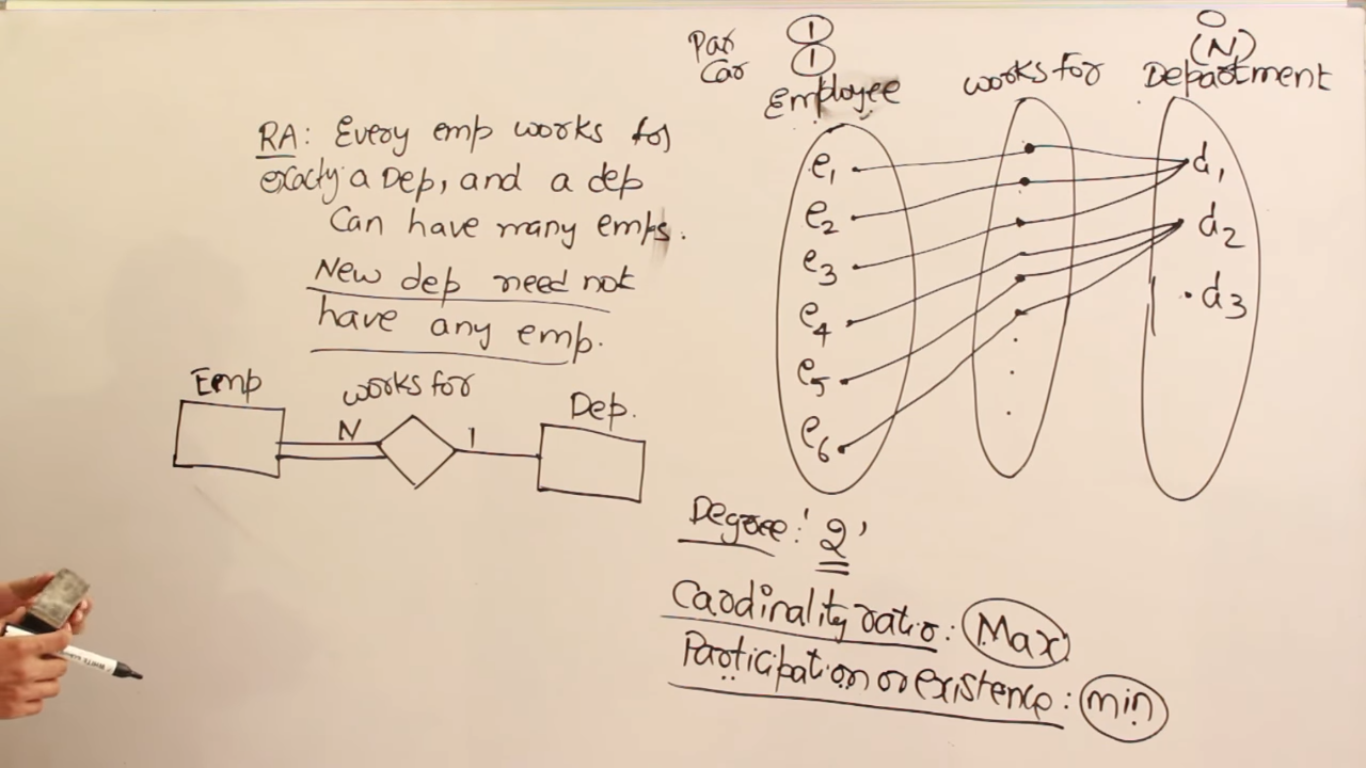 RA: Every emp works for
exacty a Dep, and a dep
Can have many emps.
New dep need not
have any emp.
Emp
works for
Dep.
N
1
Par 1 0
Car 1 (N)
Employee works for Department
e1 d1
e2 d2
e3 d3
e4
e5
e6
Degree: '2'
Cardinality ratio: Max
Participation or existence: min